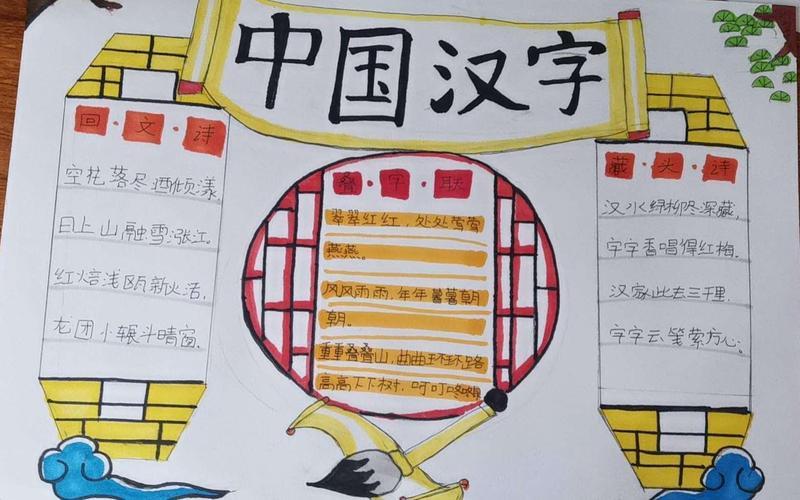 中国汉字
回·文·诗
空花落尽酒倾漾,
日上山融雪涨江。
红焙浅瓯新火活,
龙团小辗斗晴窗。
叠·字·联
翠翠红红,处处莺莺
燕燕。
风风雨雨,年年暮暮朝
朝。
重重叠叠山,曲曲环环路
高高下下树,叮叮咚咚
藏·头·诗
汉水绿柳尽深藏,
字字香唱得红梅。
汉家此去三千里,
字字云笺萦方心。